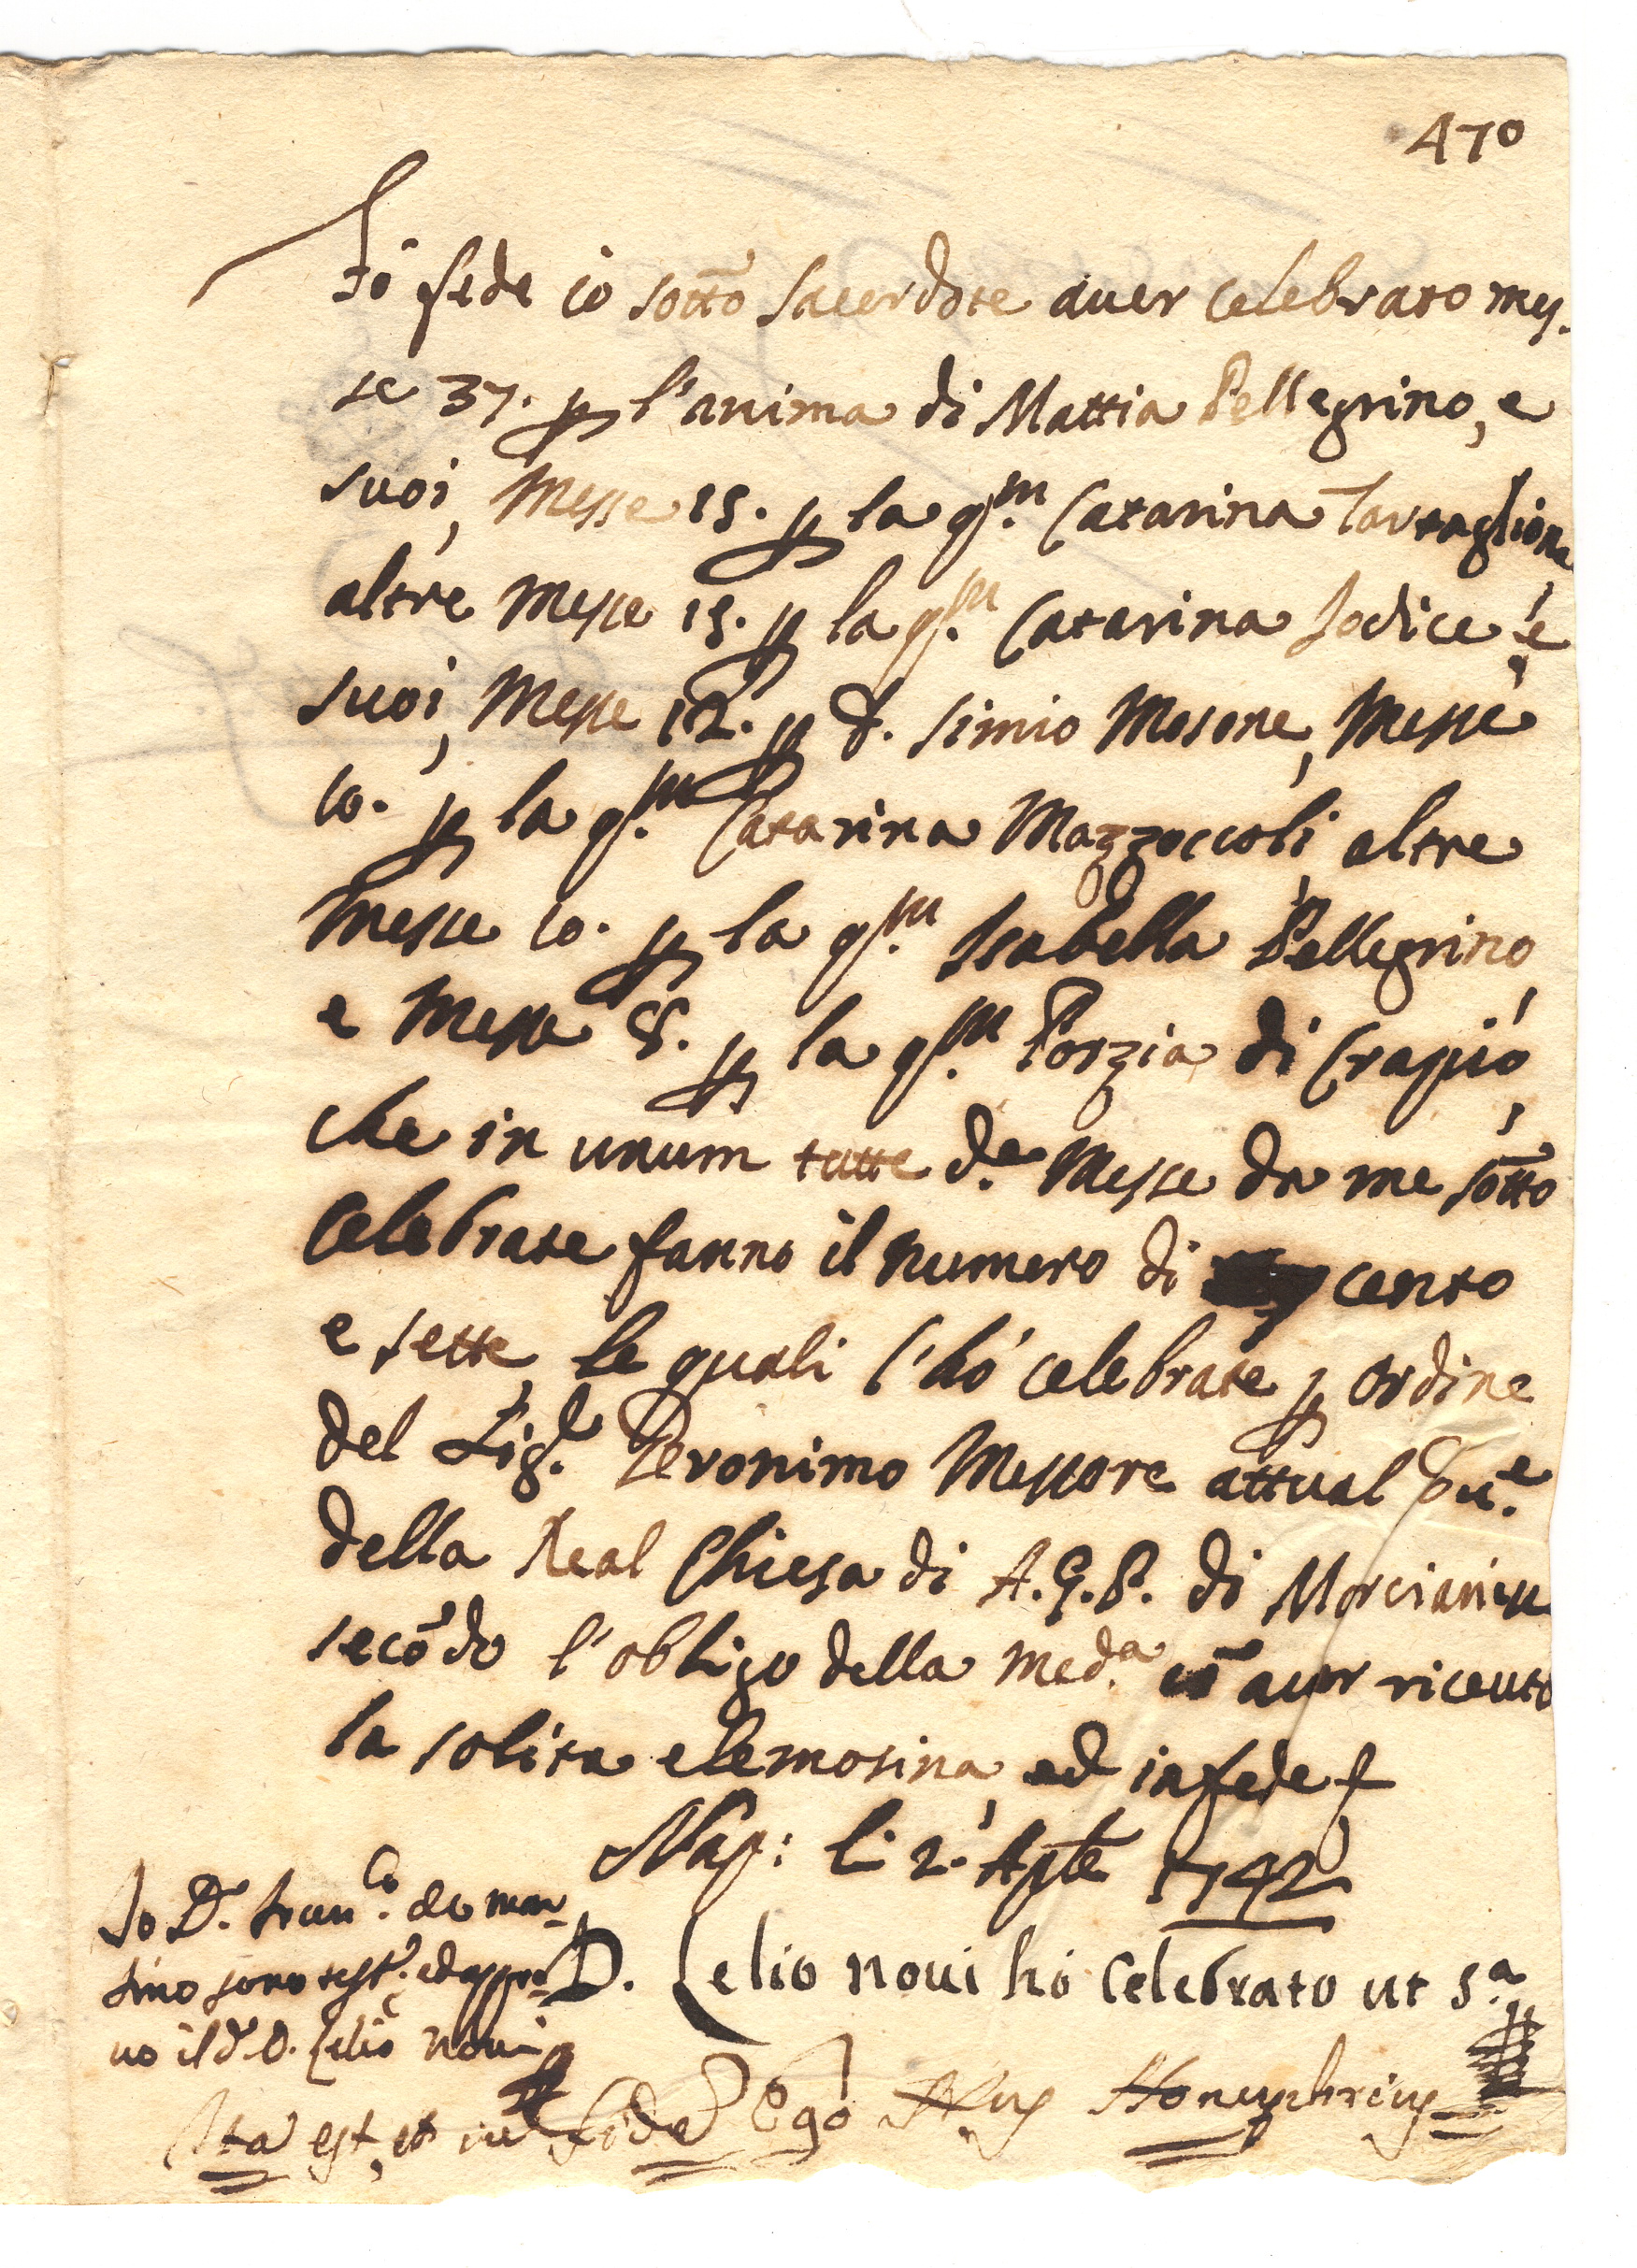 470
Fò fede io sotto Sacerdote aver celebrato mes.
se 37. p l'anima di Mattia Pellegrino, e
suoi, Messe 15. p la qm. Catarina Tartaglione,
altre Messe 15. p la qm. Catarina Jodice, e
suoi, Messe 12. p D. Simio Mosone, Messe
10. p la qm. Catarina Mazzoccoli, altre
Messe 10. p la qm. Isabella Pellegrino,
e Messe 8. p la qm. Porzia di
che in unum tutte de. Messe da me sotto
Celebrate fanno il numero di cento
e sette, le quali l'hò celebrate p ordine
del Sigr. Geronimo Messore attual
della Real Chiesa di A.G.P. di Morcianisi
secōdo l'obligo della meda. cō aver riceuto
la solita elemosina, ed in fede
Nap: li 2. Aple 1742
D. Lelio Novi hò celebrato ut sa.
Io D. Franco. de mar
tino sono testo. ed appro
vo il do. D. Lelio Novi
Ita est, et in fide Ego Honuphrius